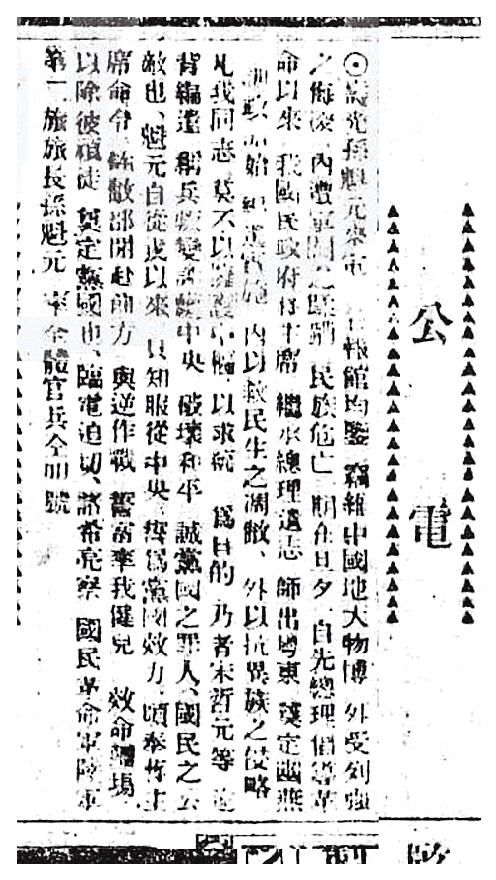 公電
⊙壽光孫魁元來電 報館均鑒 竊維中國地大物博 外受列強
之侮凌、內遭軍閥之蹂躪 民族危亡、期在旦夕、自先總理倡導革
命以來、我國民政府蔣主席 繼承總理遺志 師出粵東 奠定幽燕
訓政開始 內以救民生之凋敝、外以抗異族之侵略
凡我同志、莫不以擁護中樞、以求統 為目的 乃者宋哲元等
背編遣 稱兵叛變 中央 破壞和平 誠黨國之罪人、國民之公
敵也、魁元自從戎以來、只知服從中央、為黨國效力、頃奉蔣主
席命令、飭敝部開赴前方 與逆作戰 誓當率我健兒 效命疆場、
以除彼頑徒 奠定黨國也、臨電迫切、諸希亮察 國民革命軍陸軍
第二旅旅長孫魁元 率全體官兵仝叩號